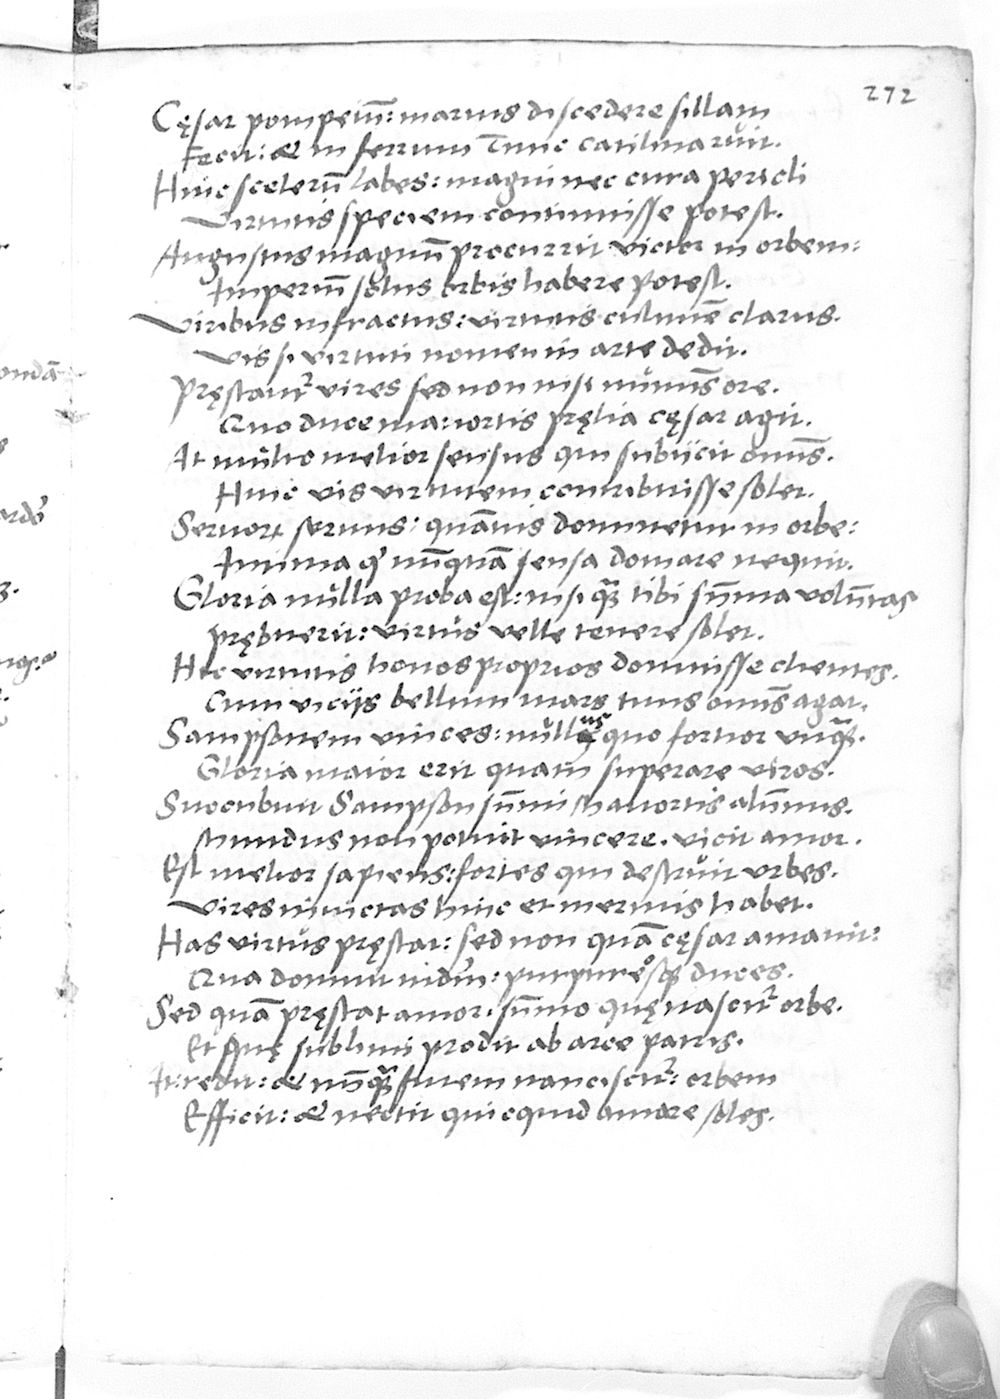 272
Cęsar pompeiũ: marius discedere sillam
Fecit: & in ferrum Tunc catilina ruit.
Huic scelerũ labes: magni nec cura pericli
Virtutis speciem continuisse potest.
Augustus magnũ procurrit victor in orbem:
Imperiũ solus orbis habere potest.
Viribus infractus: virtutis culmine clarus.
Vis si virtuti nomen in arte dedit.
Pręstant vires sed non nisi numĩs ore.
Quo duce mauortis pręlia cęsar agit.
At multo melior sensus qui subiicit omĩs.
Huic vis virtutem contribuisse solet.
Seruorꝝ seruus: quãuis dominetur in orbe:
Intima qui nũquã sensa domare nequit.
Gloria nulla proba est: nisi quã tibi sũma volũtas
prębuerit: virtus velle tenere solet.
Hec virtutis honos proprios domuisse clientes.
Cum viciis bellum mars tuus omĩs agat.
Sampsonem vinces: nullus quo fortior vnquã.
Gloria maior erit quam superare viros.
Succubuit Sampson sũmi mauortis alũnus.
Mundus non potuit vincere. vicit amor.
Est melior sapiens: fortes qui destruit vrbes.
Vires inuictas hinc et inermis habet.
Has virtus pręstat: sed non quã cęsar amauit:
Qua domuit : purpureosque duces.
Sed quã pręstat amor. sũmo quę nascit orbe.
Et quę sublimi prodit ab arce patris.
It: redit: & nũquã finem nanciscit: orbem
Efficit: & nectit quicquid amare soles.